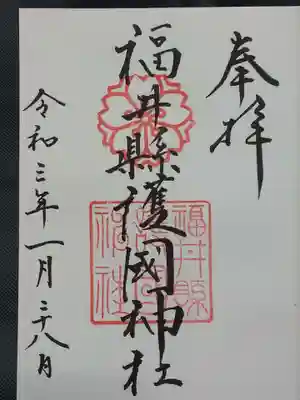 奉拝
福井縣護國神社
福井縣護國神社
令和三年一月二十八日